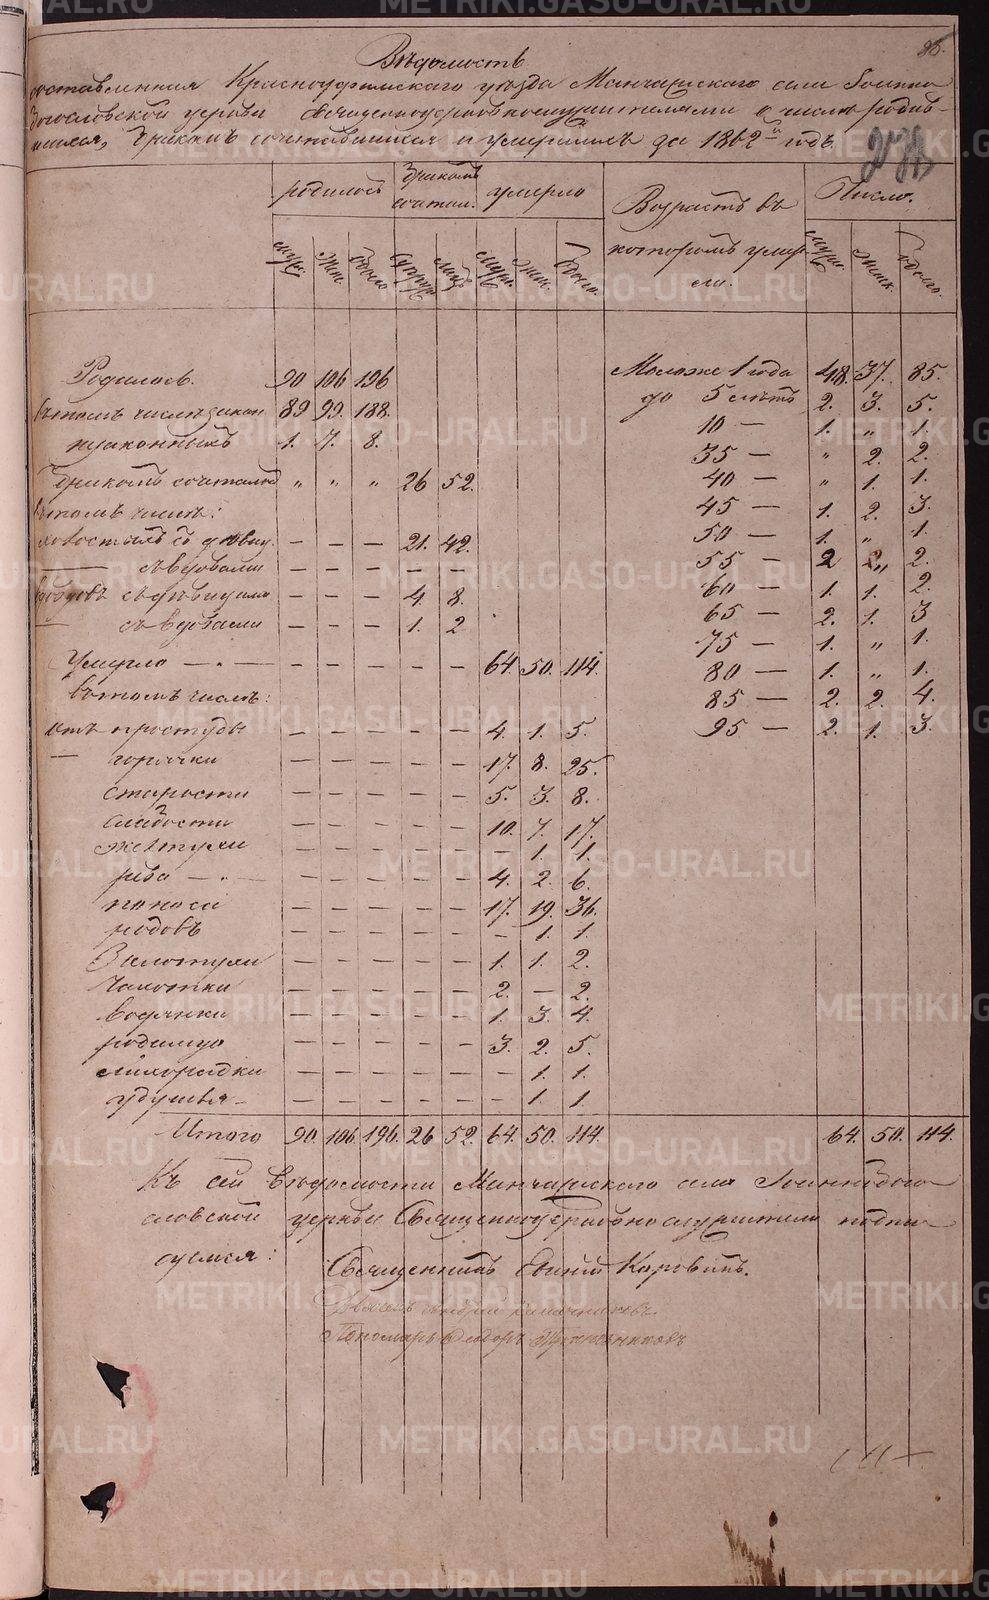 85.
Вѣдомость
составленная Красноуфимскаго уѣзда Манчажскаго села Іоанно
Богословской церкви священноцерковнослужителями о числѣ родив-
шихся, бракомъ сочетавшихся и умершихъ за 1862-й годъ.
родилось | бракомъ сочетал. | умерло | Возрастъ въ которомъ умерли. | Число.
муж. | жен. | обоего | супруж. | лицъ | муж. | жен. | обоего. | муж. | женск. | обоего.
Родилось. 90 106 196 | Моложе 1 года 48. 37. 85.
въ томъ числѣ закон 89 99. 188. | до 5 лѣтъ 2. 3. 5.
незаконныхъ 1. 7. 8. | 10 — 1. „ 1.
35 — „ 2. 2.
Бракомъ сочеталось „ „ „ 26 52. | 40 — „ 1. 1.
въ томъ числѣ: | 45 — 1. 2. 3.
холостыхъ съ дѣвиц. — — — 21. 42. | 50 — 1. „ 1.
— съ вдовами — — — — — | 55 — 2 „ 2.
вдовцовъ съ дѣвицами — — — 4. 8. | 60 — 1. 1. 2.
— съ вдовами — — — 1. 2 | 65 — 2. 1. 3
Умерло — „ — — — — — — 64. 50. 114. | 75 — 1. „ 1.
80 — 1. „ 1.
въ томъ числѣ: | 85 — 2. 2. 4.
отъ простуды — — — — — 4. 1. 5. | 95 — 2. 1. 3.
— горячки — — — — — 17. 8. 25.
старости — — — — — 5. 3. 8.
слабости — — — — — 10. 7. 17.
жолтухи — — — — — — 1. 1.
рева — „ — — — — — — 4. 2. 6.
поноса — — — — — 17. 19. 36.
родовъ — — — — — — 1. 1.
Золотухи — — — — — 1. 1. 2.
Чахотки — — — — — 2. — 2.
водянки — — — — — 1. 3. 4.
родимца — — — — — 3. 2. 5.
лихорадки — — — — — — 1. 1.
удушья — — — — — — — 1. 1.
Итого 90. 106. 196. 26 52. 64. 50. 114. | 64. 50. 114.
Къ сей вѣдомости Манчажскаго села Іоанно Бого
словской церкви Священноцерковнослужители подпи
суемся:
Священникъ Евгеній Коровинъ.
Дьяконъ Андрей
Пономарь Ѳедоръ
METRIKI.GASO-URAL.RU